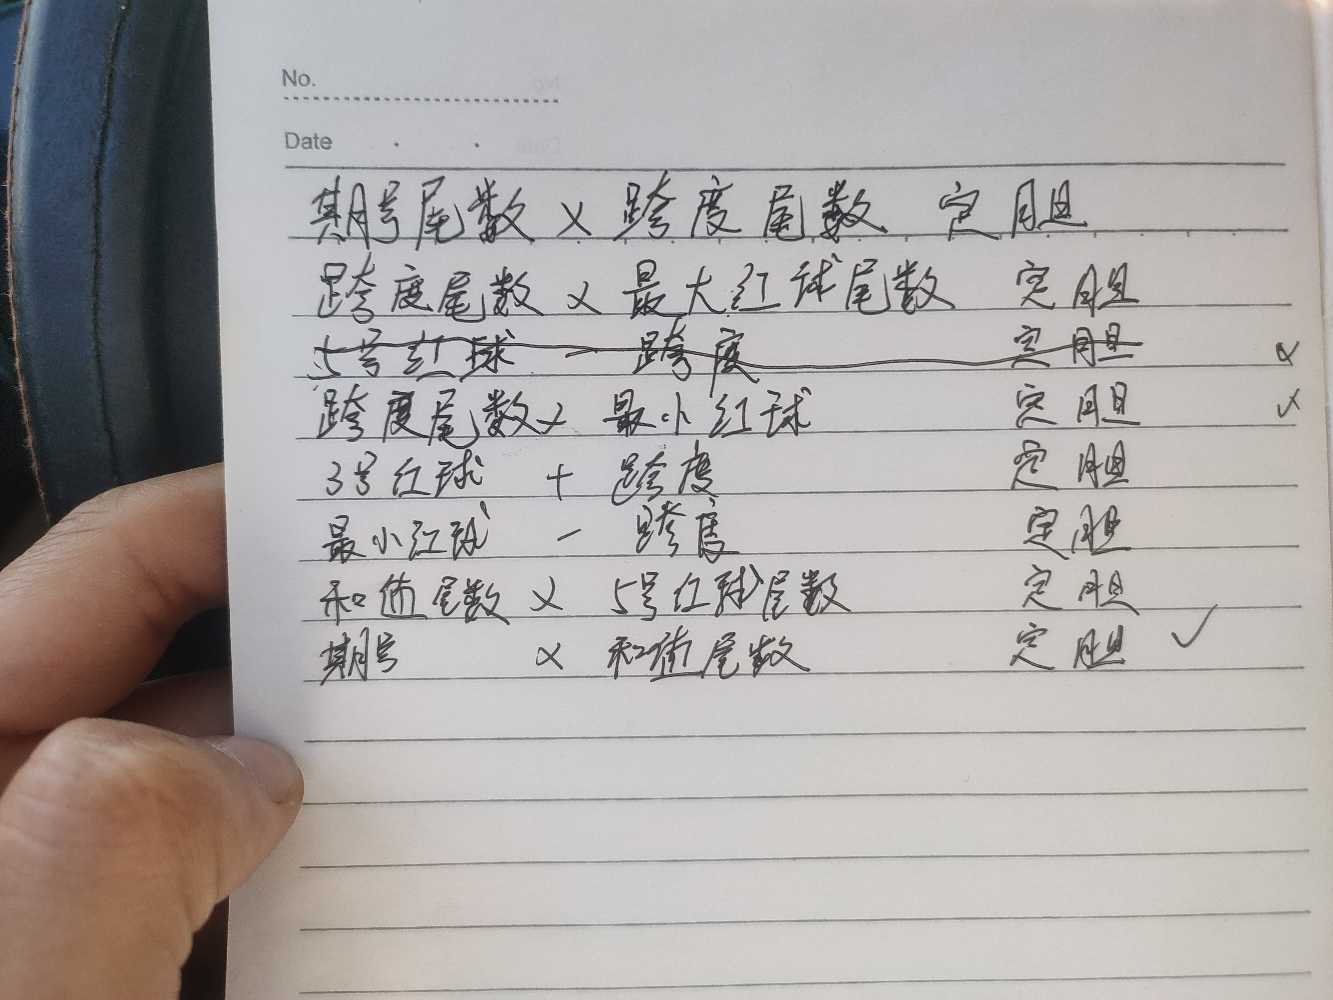 No.
Date
期号尾数 × 跨度尾数 定胆
跨度尾数 × 最大红球尾数 定胆
5号红球 - 跨度 定胆 ×
跨度尾数 × 最小红球 定胆 ×
3号红球 + 跨度 定胆
最小红球 - 跨度 定胆
和值尾数 × 5号红球尾数 定胆
期号 × 和值尾数 定胆 ✓